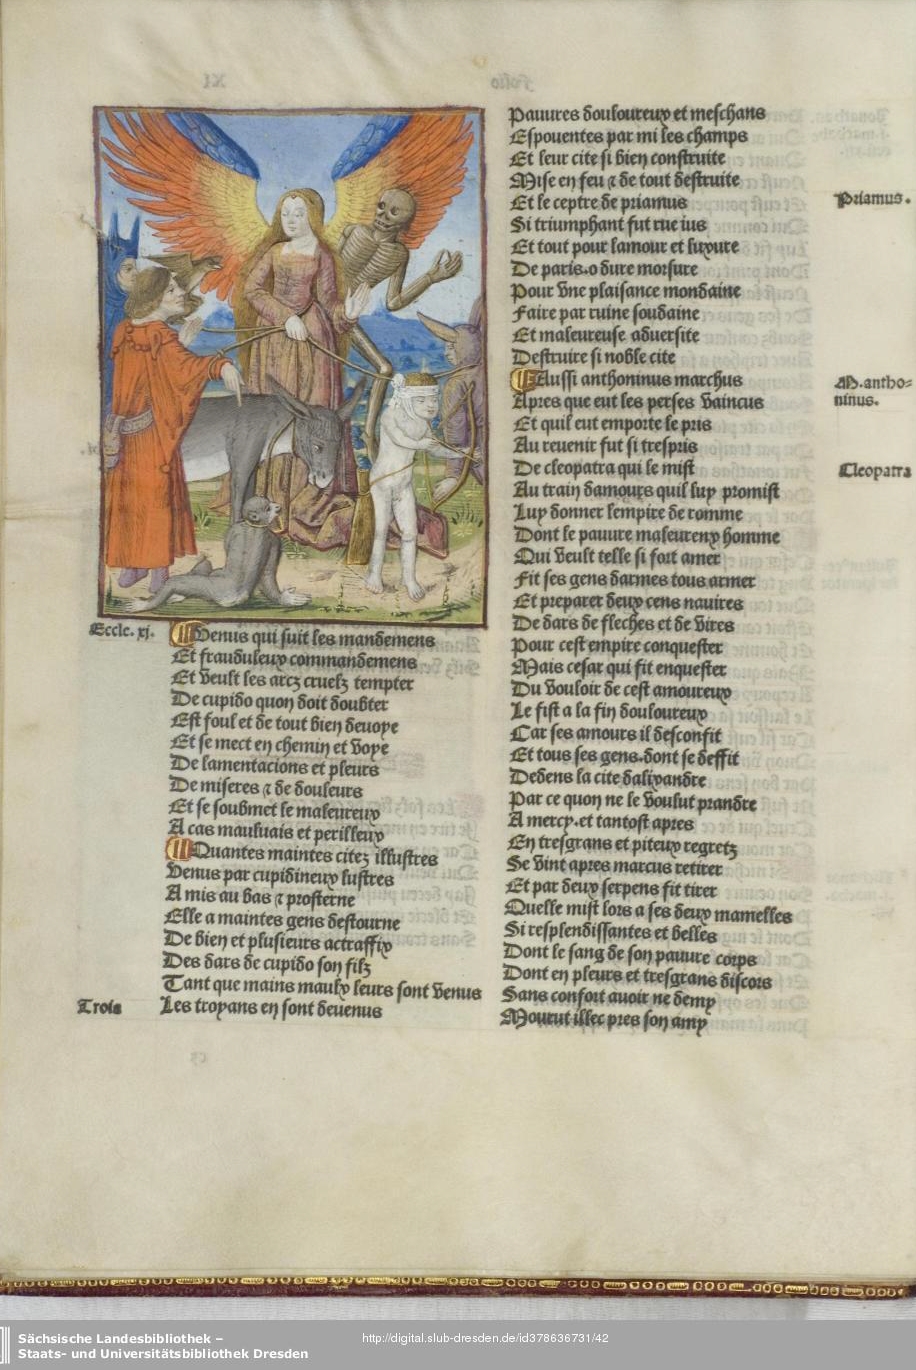 Eccle. xj.
Venus qui suit les mandemens
Et frauduleux commandemens
Et veult les arcz cruelz tempter
De cupido quon doit doubter
Est foul et de tout bien devoye
Et se mect en chemin et voye
De lamentacions et pleurs
De miseres ⁊ de douleurs
Et se soubmet le maleureux
A cas mauluais et perilleux
Quantes maintes citez illustres
Venus par cupidineux lustres
A mis au bas ⁊ prosterne
Elle a maintes gens destourne
De bien et plusieurs actraffix
Des dars de cupido son filz
Tant que mains maulx leurs sont venus
Trois
Les troyans en sont devenus
Pauures douloureux et meschans
Espouentes par mi les champs
Et leur cite si bien construite
Mise en feu ⁊ de tout destruite
Et le ceptre de priamus
Priamus.
Si triumphant fut rue ius
Et tout pour lamour et luxure
De paris.o dure morsure
Pour vne plaisance mondaine
Faire par ruine soudaine
Et maleureuse aduersite
Destruire si noble cite
Aussi anthoninus marchus
M. antho=
ninus.
Apres que eut les perses vaincus
Et quil eut emporte le pris
Au reuenir fut si trespris
De cleopatra qui le mist
Cleopatra
Au train damours quil luy promist
Luy donner lempire de romme
Dont le pauure maleureux homme
Qui veult telle si fort amer
Fit ses gens darmes tous armer
Et preparer deux cens nauires
De dars de fleches et de vires
Pour cest empire conquester
Mais cesar qui fit enquester
Du vouloir de cest amoureux
Le fist a la fin douloureux
Car ses amours il desconfit
Et tous ses gens.dont se deffit
Dedens la cite dalixandre
Par ce quon ne le voulut prandre
A mercy.et tantost apres
En tresgrans et piteux regretz
Se vint apres marcus retirer
Et par deux serpens fit tirer
Quelle mist lors a ses deux mamelles
Si resplendissantes et belles
Dont le sang de son pauure corps
Dont en pleurs et tresgrans discors
Sans confort auoir ne demy
Mourut illec pres son amy
Sächsische Landesbibliothek –
Staats- und Universitätsbibliothek Dresden
http://digital.slub-dresden.de/id378636731/42